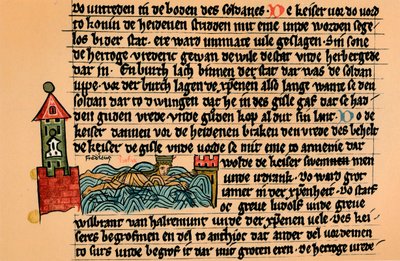 do vntreden in de boden des soldanes. De keiser vor do vord
to konin de heidenen stridden mit eme vnde worden sege
los bi der stat. ere ward vnmate vile geslagen. Sin sone
de hertoge vrederic gewan de vile de stat vnde herbergede
dar in. En burch lach binnen der stat dar was de soldan
uppe. vor der burch lagen de xpenen also lange wante se den
soldan dar to dwungen dat he in des gisle gaf dat se had
den guden vrede vnde guden kop al dur sin lant. Do de
keiser dannen vor de heidenen braken den vrede des behelt
de keiser de gisle vnde vorde se mit eme to armenie dar
wolde de keiser swemmen
vnde irdrank. Do ward grot
iamer in der xpenheit. Do starf
oc greve ludolf vnde greve
wilbrant van halremunt vnde der xpenen vele. Des kei
seres begrof men en del to anthioc dat ander del vor
to surs vnde begrof it dar mit groten eren. De hertoge vrede